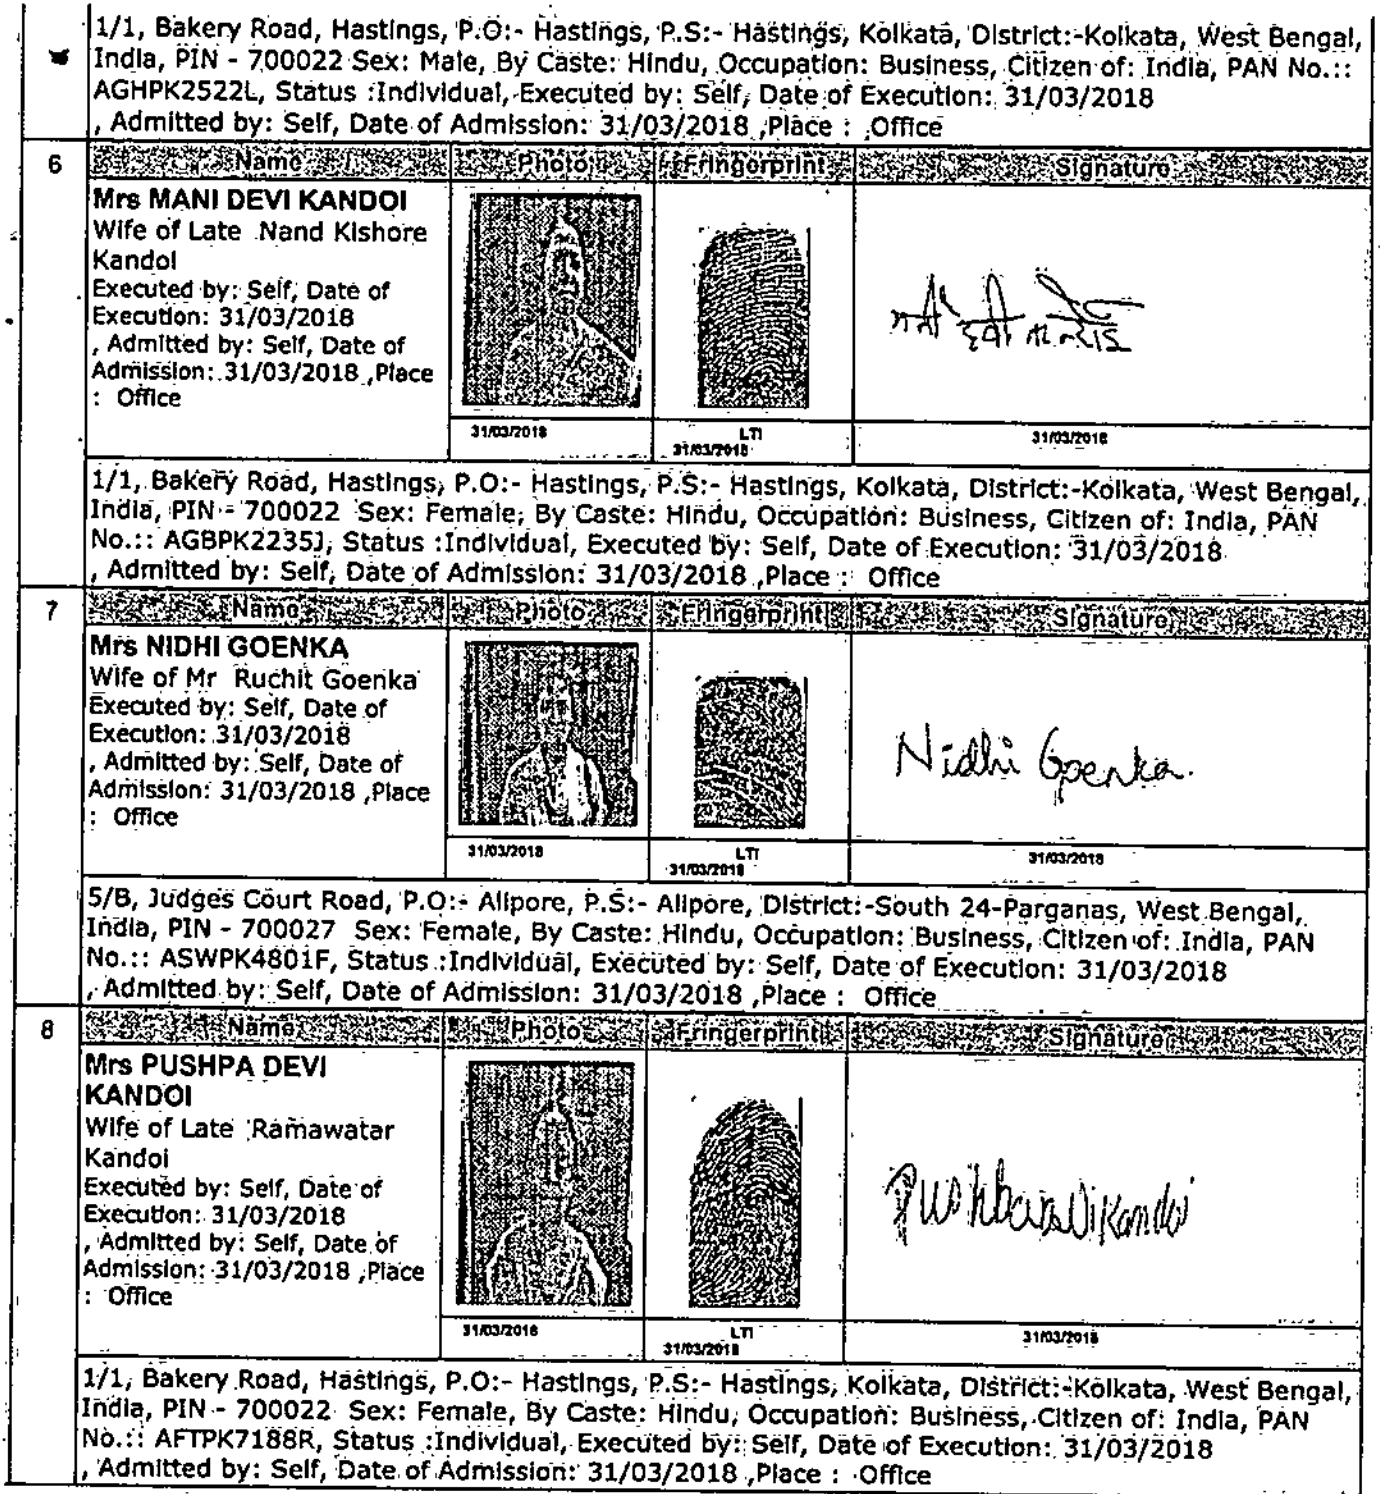 1/1, Bakery Road, Hastings, P.O:- Hastings, P.S:- Hastings, Kolkata, District:-Kolkata, West Bengal,
India, PIN - 700022 Sex: Male, By Caste: Hindu, Occupation: Business, Citizen of: India, PAN No.::
AGHPK2522L, Status :Individual, Executed by: Self, Date of Execution: 31/03/2018
, Admitted by: Self, Date of Admission: 31/03/2018 ,Place : Office
6 Name Photo Fringerprint Signature
Mrs MANI DEVI KANDOI
Wife of Late Nand Kishore
Kandoi
Executed by: Self, Date of
Execution: 31/03/2018
, Admitted by: Self, Date of
Admission: 31/03/2018 ,Place
: Office
31/03/2018 LTI 31/03/2018
31/03/2018
1/1, Bakery Road, Hastings, P.O:- Hastings, P.S:- Hastings, Kolkata, District:-Kolkata, West Bengal,
India, PIN - 700022 Sex: Female, By Caste: Hindu, Occupation: Business, Citizen of: India, PAN
No.:: AGBPK2235J, Status :Individual, Executed by: Self, Date of Execution: 31/03/2018
, Admitted by: Self, Date of Admission: 31/03/2018 ,Place : Office
7 Name Photo Fringerprint Signature
Mrs NIDHI GOENKA
Wife of Mr Ruchit Goenka
Executed by: Self, Date of
Execution: 31/03/2018
, Admitted by: Self, Date of
Admission: 31/03/2018 ,Place
: Office
Nidhi Goenka.
31/03/2018 LTI 31/03/2018
31/03/2018
5/B, Judges Court Road, P.O:- Alipore, P.S:- Alipore, District:-South 24-Parganas, West Bengal,
India, PIN - 700027 Sex: Female, By Caste: Hindu, Occupation: Business, Citizen of: India, PAN
No.:: ASWPK4801F, Status :Individual, Executed by: Self, Date of Execution: 31/03/2018
, Admitted by: Self, Date of Admission: 31/03/2018 ,Place : Office
8 Name Photo Fringerprint Signature
Mrs PUSHPA DEVI
KANDOI
Wife of Late Ramawatar
Kandoi
Executed by: Self, Date of
Execution: 31/03/2018
, Admitted by: Self, Date of
Admission: 31/03/2018 ,Place
: Office
31/03/2018 LTI 31/03/2018
31/03/2018
1/1, Bakery Road, Hastings, P.O:- Hastings, P.S:- Hastings, Kolkata, District:-Kolkata, West Bengal,
India, PIN - 700022 Sex: Female, By Caste: Hindu, Occupation: Business, Citizen of: India, PAN
No.:: AFTPK7188R, Status :Individual, Executed by: Self, Date of Execution: 31/03/2018
, Admitted by: Self, Date of Admission: 31/03/2018 ,Place : Office